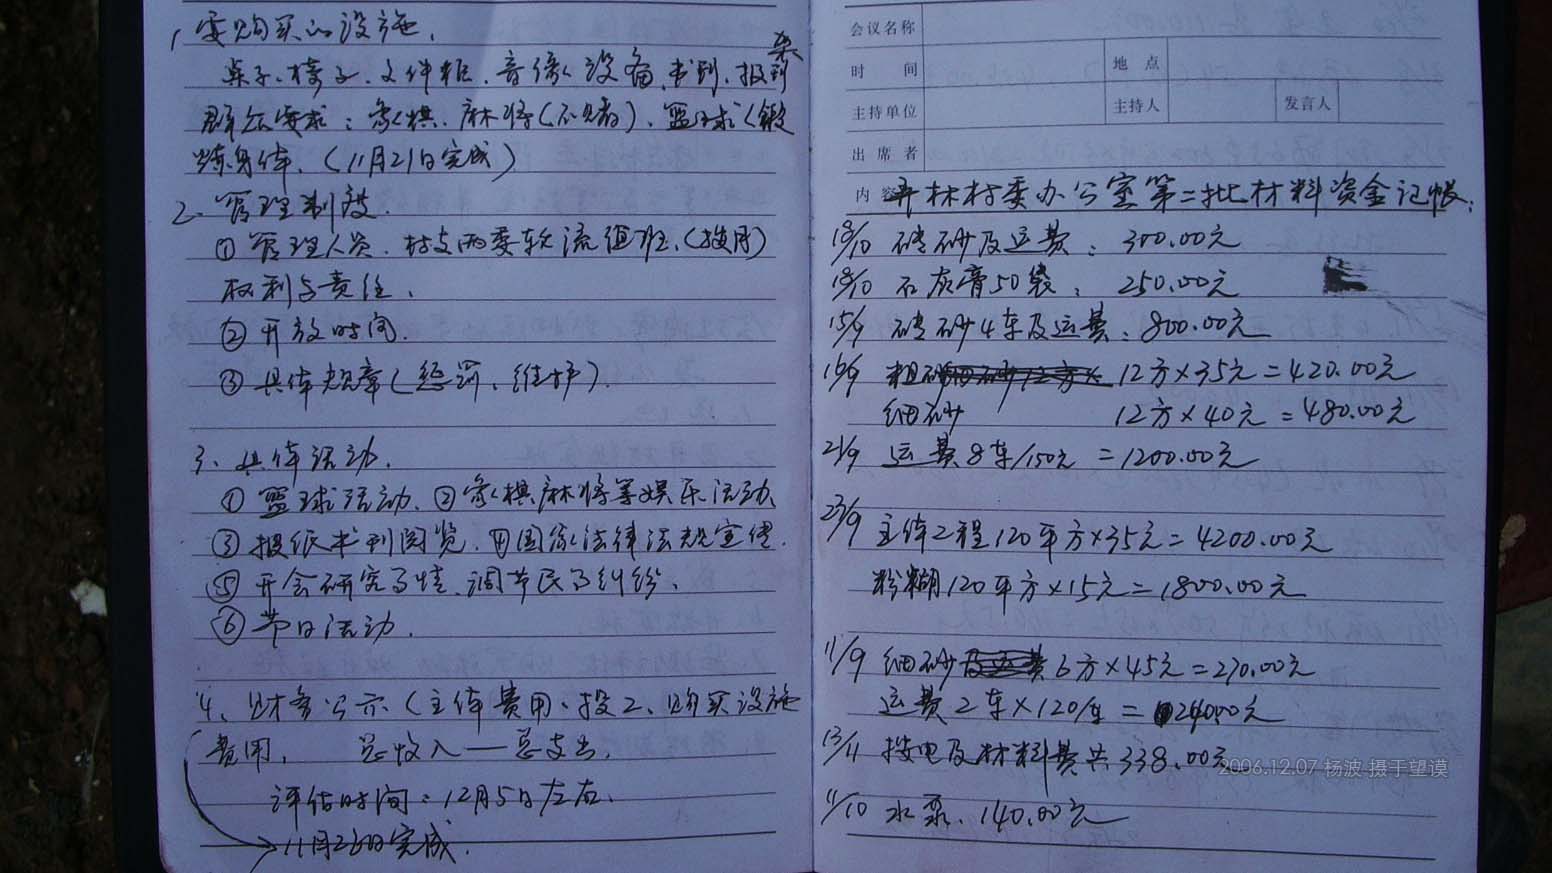 1、要购买的设施、
桌子、椅子、文件柜、音像设备、书刊、报刊架
群众要求：象棋、麻将（不赌）、篮球（锻
炼身体、（11月21日完成）
2、管理制度、
① 管理人员、村支两委轮流值班、（按周）
权利与责任、
② 开放时间、
③ 具体规章（惩罚、维护）、
3、具体活动、
① 篮球活动、② 象棋麻将等娱乐活动
③ 报纸书刊阅览、④ 国家法律法规宣传、
⑤ 开会研究事情、调节民事纠纷、
⑥ 节日活动、
4、财务公示（主体费用、投工、购买设施
费用、 总收入——总支出、
评估时间：12月5日左右、
11月26日完成、
会议名称
时 间 地 点
主持单位 主持人 发言人
出 席 者
内 容 林村委办公室第二批材料资金记帐：
18/10 磅砂及运费：300.00元
18/10 石灰膏50袋：250.00元
15/9 磅砂4车及运费：800.00元
16/9 粗砂 12方×35元=420.00元
细砂 12方×40元=480.00元
21/9 运费8车/150元=1200.00元
23/9 主体工程120平方×35元=4200.00元
粉糊120平方×15元=1800.00元
11/9 细砂 6方×45元=270.00元
运费2车×120/车=240.00元
13/11 接电及材料费共338.00元
11/10 水泵、140.00元
2006.12.07 杨波 摄于望谟